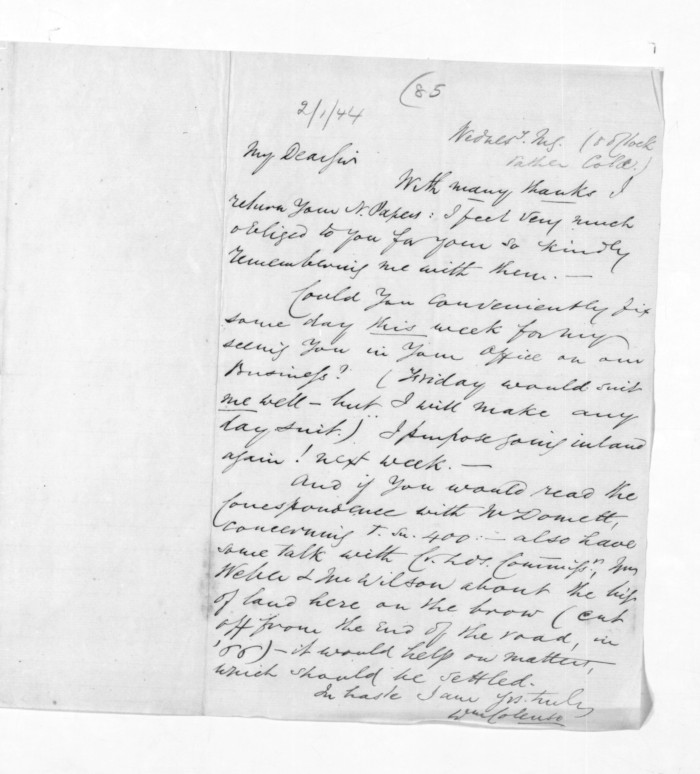 (85
2/1/44
Wednesy. Mg. (8 o'clock
rather Cold.)
My Dear Sir
With many thanks I
return your N. Papers: I feel very much
obliged to you for your so kindly
remembering me with them. —
Could you conveniently fix
some day this week for my
seeing you in your office on our
Business? (Friday would suit
me well — but I will make any
day suit.) I purpose going inland
again! next week. —
And if you would read the
Correspondence with Mr Domett,
concerning T. Sn. 400: — also have
some talk with Cr. Lds. Commissr.,
Weber & Mr Wilson about the bit
of land here on the brow (cut
off from the end of the road, in
— it would help on matters,
which should be settled.
In haste I am yrs. truly
Wm Colenso